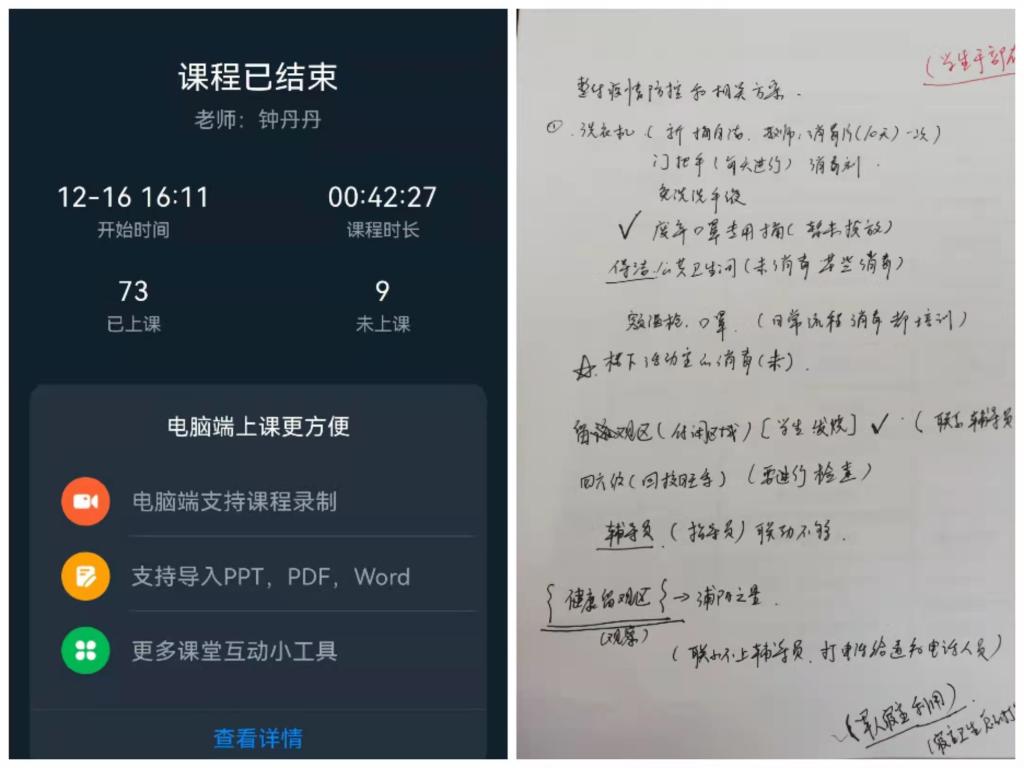 课程已结束
老师：钟丹丹
12-16 16:11
00:42:27
开始时间
课程时长
73
9
已上课
未上课
电脑端上课更方便
电脑端支持课程录制
支持导入PPT，PDF，Word
更多课堂互动小工具
查看详情
(学生干部
疫情防控和相关方案.
①.洗衣机(消毒片(10天)一次)
门把手(每天进行)消毒剂.
免洗洗手液
✓废弃口罩专用桶(暂未投放)
保洁.公共卫生间(未消毒 某些消毒)
测温枪.口罩.(日常流程消毒 培训)
☆.楼下活动室 消毒(未).
留 观区(休闲区域)[学生发烧]✓.(联系辅导员
(回校旺季)(需进行检查)
辅导员.(指导员)联动不够.
{健康留观区}→
(观察)
(联系不上辅导员.打电话给通知电话人员)
(单人寝室利用)